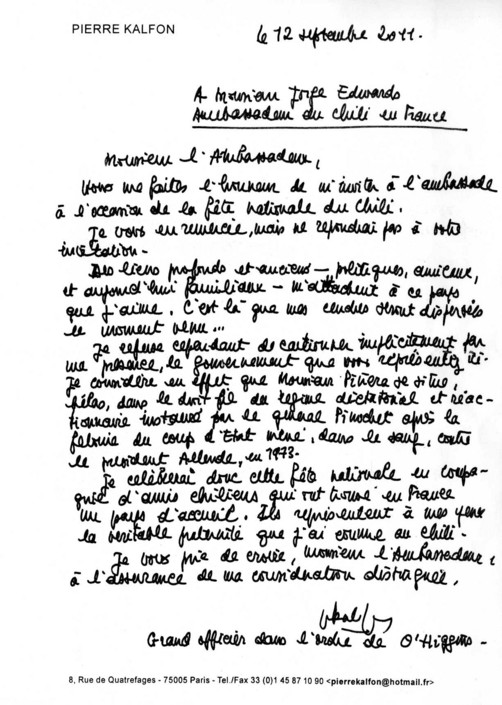 PIERRE KALFON
le 12 septembre 2011.
A Monsieur Jorge Edwards
Ambassadeur du Chili en France
Monsieur l'Ambassadeur,
Vous me faites l'honneur de m'inviter à l'ambassade
à l'occasion de la fête nationale du Chili.
Je vous en remercie, mais ne répondrai pas à votre
invitation.
Des liens profonds et anciens — politiques, amicaux,
et aujourd'hui familiaux — m'attachent à ce pays
que j'aime. C'est là que mes cendres seront dispersées
le moment venu...
Je refuse cependant de cautionner implicitement par
ma présence, le gouvernement que vous représentez ici.
Je considère en effet que Monsieur Piñera se situe,
hélas, dans le droit fil du régime dictatorial et réac-
tionnaire instauré par le général Pinochet après la
felonie du coup d'Etat mené, dans le sang, contre
le président Allende, en 1973.
Je célèbrerai donc cette fête nationale en compa-
gnie d'amis chiliens qui ont trouvé en France
un pays d'accueil. Ils représentent à mes yeux
la véritable fraternité que j'ai connue au Chili.
Je vous prie de croire, monsieur l'Ambassadeur,
à l'assurance de ma considération distinguée.
Grand officier dans l'ordre de O'Higgins
8, Rue de Quatrefages - 75005 Paris - Tel./Fax 33 (0)1 45 87 10 90 <pierrekalfon@hotmail.fr>